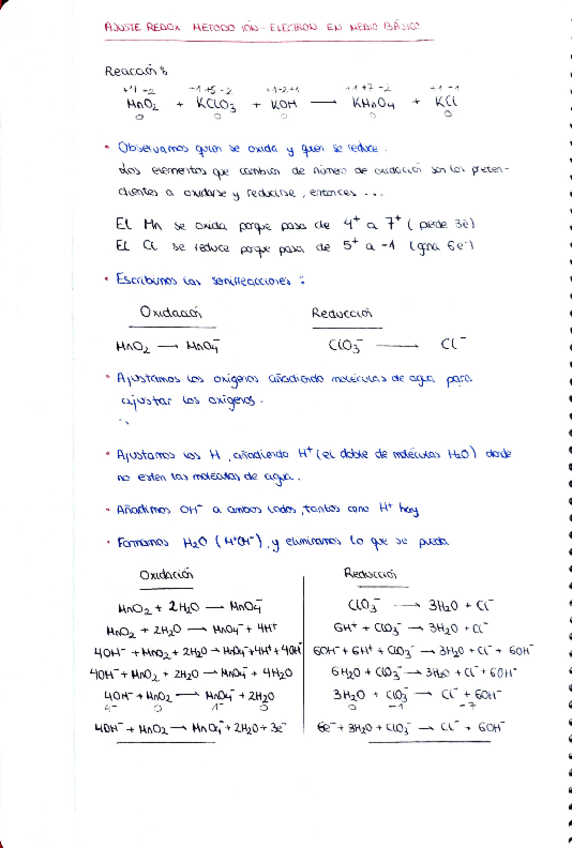 AJUSTE REDOX METODO IÓN-ELECTRON EN MEDIO BÁSICO
Reacción:
+4 -2 +1+5-2 +1-2+1 +1+7-2 +1 -1
MnO₂ + KClO₃ + KOH → KMnO₄ + KCl
0 0 0 0 0
• Observamos quien se oxida y quien se reduce.
Los elementos que cambian de número de oxidación son los preten-
dientes a oxidarse y reducirse, entonces ...
El Mn se oxida porque pasa de 4⁺ a 7⁺ (pierde 3e⁻)
El Cl se reduce porque pasa de 5⁺ a -1 (gana 6e⁻)
• Escribimos las semirreacciones:
Oxidación Reducción
MnO₂ → MnO₄⁻ ClO₃⁻ → Cl⁻
• Ajustamos los oxígenos añadiendo moléculas de agua para
ajustar los oxígenos.
• Ajustamos los H, añadiendo H⁺ (el doble de moléculas H₂O) donde
no esten las moléculas de agua.
• Añadimos OH⁻ a ambos lados, tantos como H⁺ hay
• Formamos H₂O (H⁺OH⁻), y eliminamos lo que se pueda
Oxidación Reducción
MnO₂ + 2H₂O → MnO₄⁻ ClO₃⁻ → 3H₂O + Cl⁻
MnO₂ + 2H₂O → MnO₄⁻ + 4H⁺ 6H⁺ + ClO₃⁻ → 3H₂O + Cl⁻
4OH⁻ + MnO₂ + 2H₂O → MnO₄⁻ + 4H⁺ + 4OH⁻ 6OH⁻ + 6H⁺ + ClO₃⁻ → 3H₂O + Cl⁻ + 6OH⁻
4OH⁻ + MnO₂ + 2H₂O → MnO₄⁻ + 4H₂O 6H₂O + ClO₃⁻ → 3H₂O + Cl⁻ + 6OH⁻
4OH⁻ + MnO₂ → MnO₄⁻ + 2H₂O 3H₂O + ClO₃⁻ → Cl⁻ + 6OH⁻
4⁻ 0 1⁻ 0 0 -1 -7
4OH⁻ + MnO₂ → MnO₄⁻ + 2H₂O + 3e⁻ 6e⁻ + 3H₂O + ClO₃⁻ → Cl⁻ + 6OH⁻